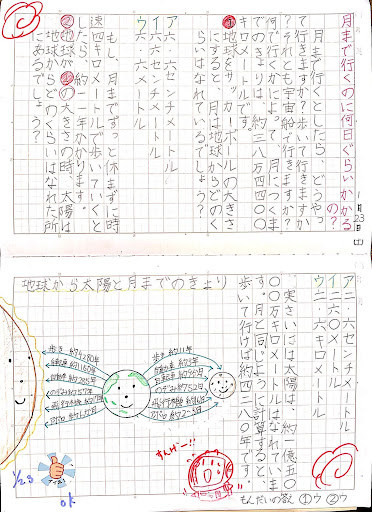 月まで行くのに何日ぐらいかかるの?
1月23日(土)
月まで行くとしたら、どうやって行きますか?歩いて行きますか?それとも宇宙船で行きますか?何で行くかによって、月につくまでのきょりは、約三八万四四〇〇キロメートルです。
①地球をサッカーボールの大きさにすると、月は地球からどのくらいはなれているでしょう?
ア 六・六センチメートル
イ 六六センチメートル
ウ 六・六メートル
もし、月までずっと休まずに時速四キロメートルで歩いていくとしたら、約十一年かかります。
②地球が①の大きさの時、太陽は地球からどのくらいはなれた所にあるでしょう?
ア 二六〇センチメートル
イ 二六〇メートル
ウ 二・六キロメートル
実さいには太陽は、約一億五〇〇〇万キロメートルはなれています。月と同じように計算すると、歩いて行けば約四二八〇年です。
地球から太陽と月までのきょり
歩き 約4280年
歩き 約11年
すんげー!!
1/23
OK
もんだいの答え ①ウ ②ウ